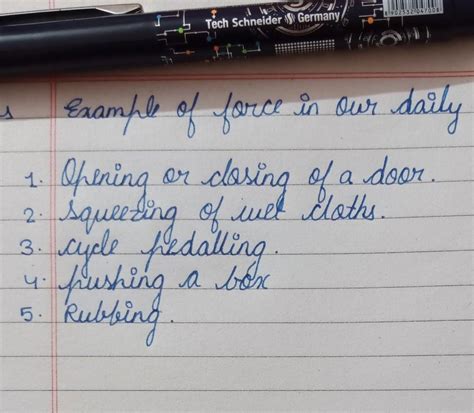 Tech Schneider Germany
s Example of force in our daily
1. Opening or closing of a door.
2. squeezing of wet cloths.
3. cycle pedalling.
4. pushing a box
5. Rubbing.